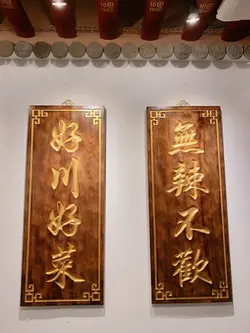 無辣不歡
好川好菜